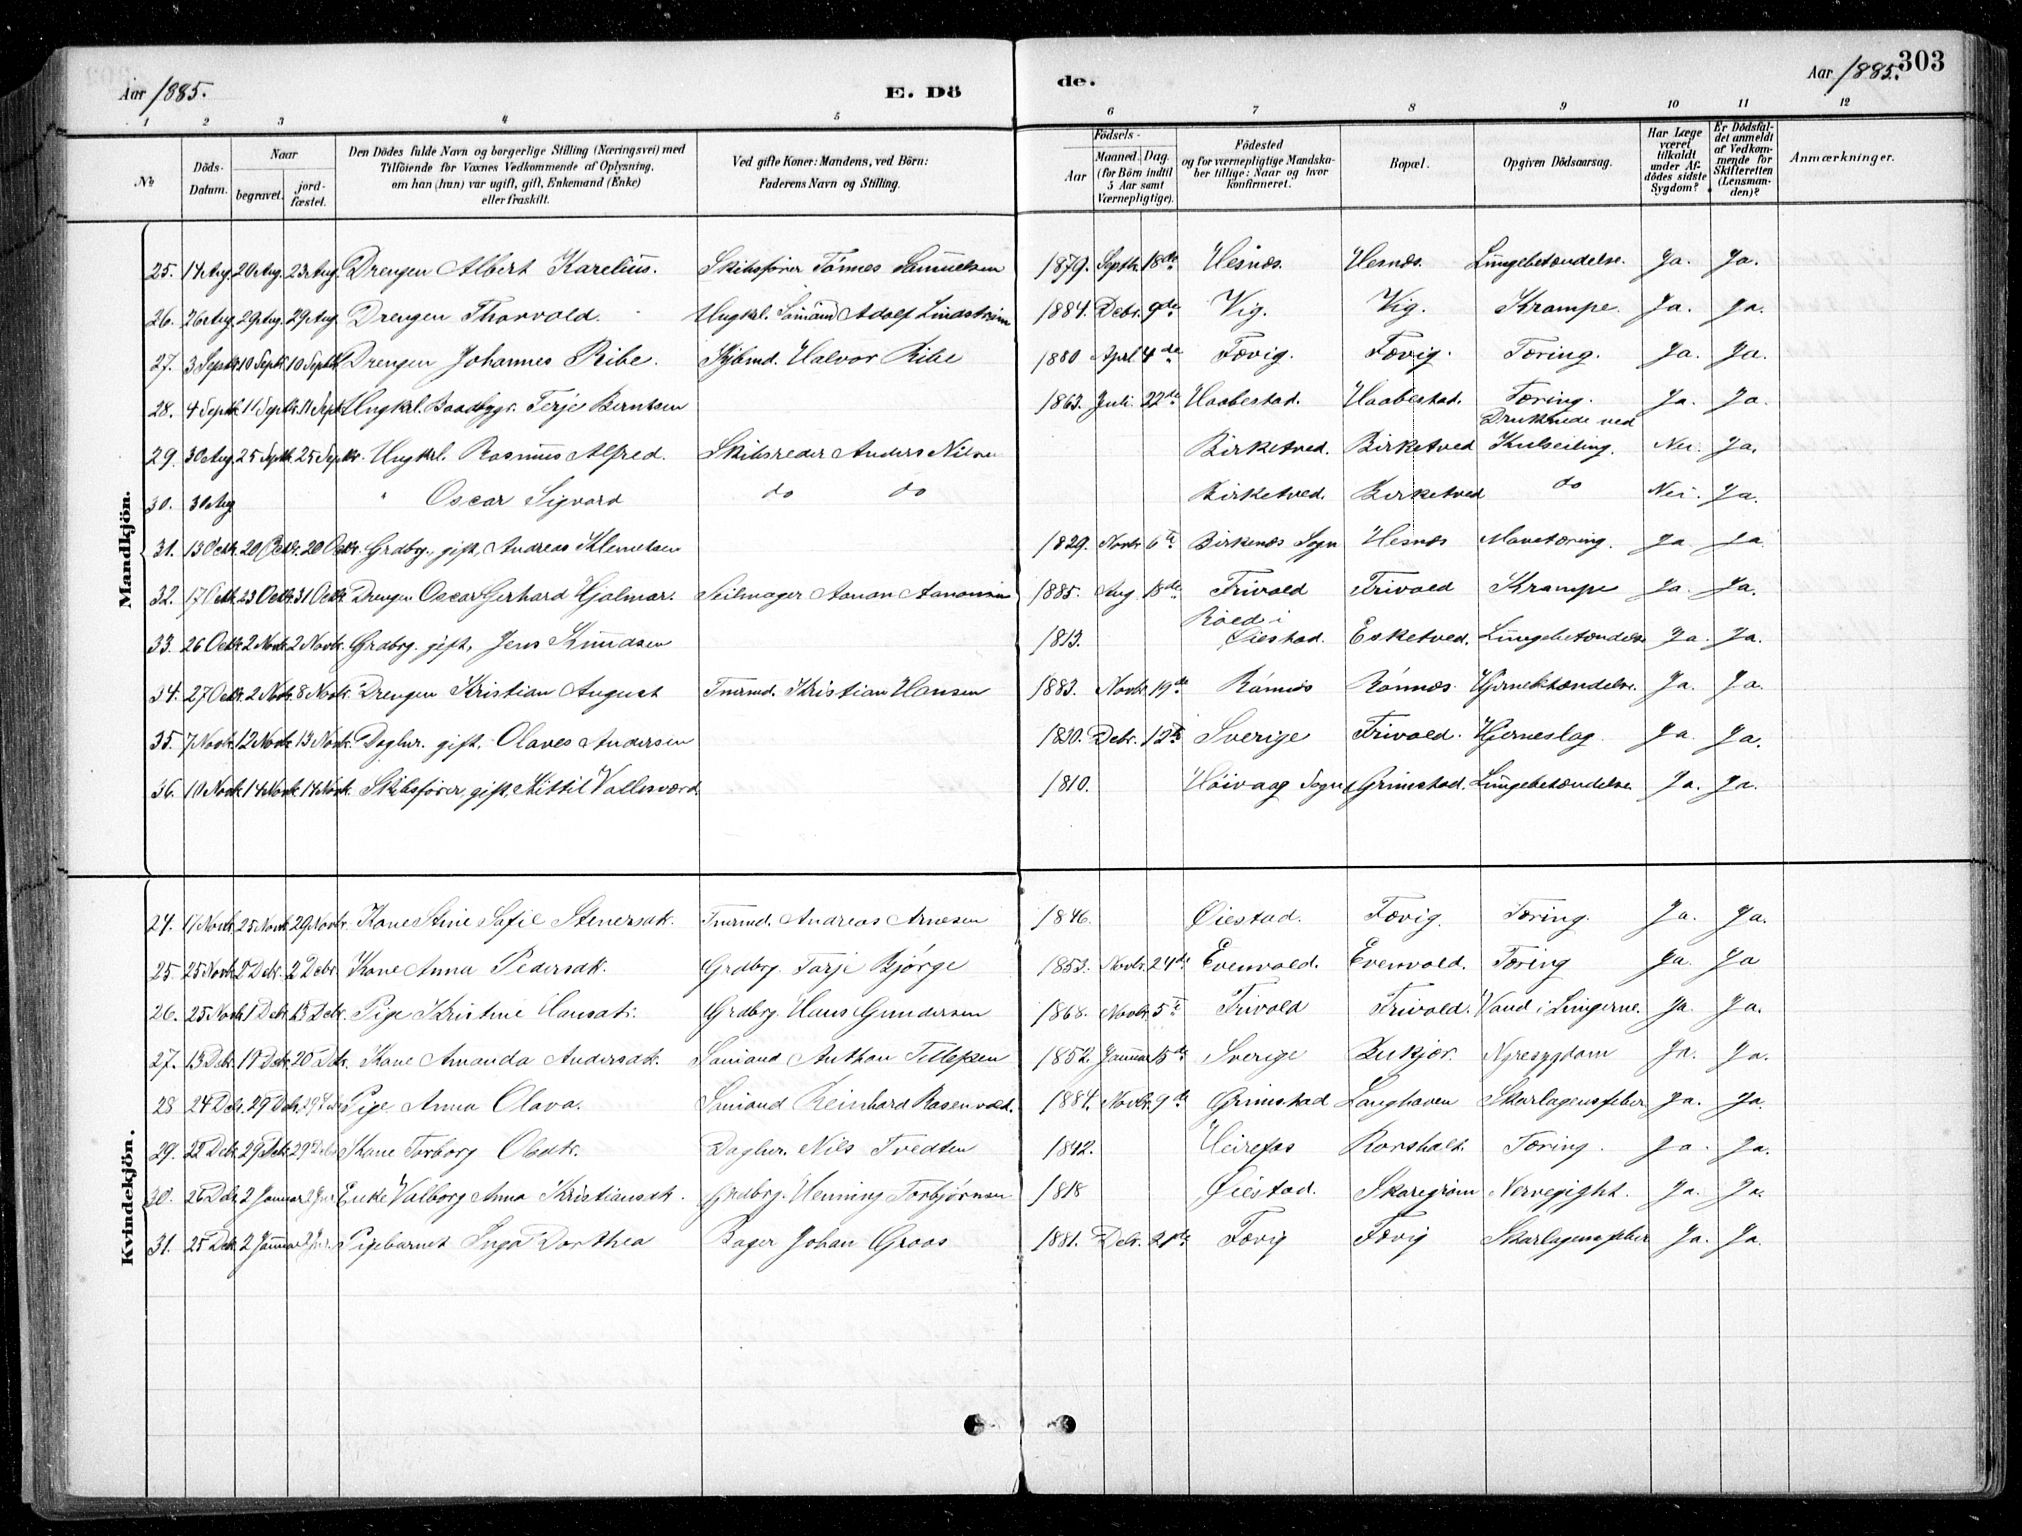 303
Aar 1885.
E. Dö
de.
Aar 1885.
1 2 3 4 5 6 7 8 9 10 11 12
№
Döds-Datum.
Naar
begravet.
jord-fæstet.
Den Dödes fulde Navn og borgerlige Stilling (Næringsvei) med
Tilföiende for Voxnes Vedkommende af Oplysning,
om han (hun) var ugift, gift, Enkemand (Enke)
eller fraskilt.
Ved gifte Koner: Mandens, ved Börn:
Faderens Navn og Stilling.
Födsels-
Aar
Maaned. Dag.
(for Börn indtil
5 Aar samt
Værnepligtige).
Födested
og for værnepligtige Mandska-
ber tillige: Naar og hvor
konfirmeret.
Bopæl.
Opgiven Dödsaarsag.
Har Læge
været
tilkaldt
under Af-
dödes sidste
Sygdom?
Er Dödsfal-
det anmeldt
af Vedkom-
mende for
Skifteretten
(Lensman-
den)?
Anmærkninger.
Mandkjön.
25. 14 Aug. 20 Aug. 23 Aug. Drengen Albert Karelius. Skibsfører Tönnes Samuelsen 1879. Septb. 18de Hesnæs. Hesnæs. Lungebetændelse. Ja. Ja.
26. 26 Aug. 29 Aug. 29 Aug. Drengen Thorvold. Ungkrl. Sömand Adolf Lindström 1884. Debr. 9de Vig. Vig. Krampe. Ja. Ja.
27. 3 Septb. 10 Septb. 10 Septb. Drengen Johannes Ribe. Kjbmd. Halvor Ribe 1880 Aprl 4de Fævig. Fævig. Tæring. Ja. Ja.
28. 4 Septb. 11 Septb. 11 Septb. Ungkrl. Baadbygr. Terje Berntsen 1863. Juli. 22de Haabestad. Haabestad. Tæring. Ja. Ja.
29. 30 Aug. 25 Septb. 25 Septb. Ungkrl. Rasmus Alfred. Skibsreder Anders Nilsen Birketved. Birketved Druknede ved Kulseiling. Nei. Ja.
30. 30 Aug. " Oscar Sigvard do do Birketved. Birketved do Nei. Ja.
31. 13 Octb. 20 Octb. 20 Octb. Grdbrg., gift, Andreas Klemetsen 1829. Novb. 6te Birkenæs Sogn Hesnæs Mavetæring. Ja Ja
32. 17 Octb. 23 Octb. 31 Octb. Drengen Oscar Gerhard Hjalmar. Seilmager Aanon Aanonsen 1885. Aug. 18de Frivold Frivold Krampe Ja. Ja.
33. 26 Octb. 2 Novb. 2 Novb. Grdbrg. gift, Jens Knudsen 1813. Roed i Øiestad. Esketved. Lungebetændelse Ja. Ja.
34. 27 Octb. 2 Novb. 8 Novb. Drengen Kristian August Tmrmd. Kristian Hansen 1883. Novbr. 19de Rönnæs Rönnæs. Hjernebetændelse. Ja. Ja.
35. 7 Novb. 12 Novb. 13 Novb. Daglnr. gift, Olaves Andersen 1830. Debr. 12te Sverige Frivold. Hjerneslag. Ja. Ja.
36. 10 Novb. 14 Novb. 14 Novb. Skibsfører, gift, Kittil Vallesværd. 1810. Höivaag Sogn Grimstad. Lungebetændelse Ja. Ja.
Kvindekjön.
24. 17 Novb. 25 Novb. 29 Novbr. Kone Stine Sofie Stenersdt. Tmrmd. Andreas Arnesen 1846. Øiestad. Fævig. Tæring. Ja. Ja.
25. 25 Novb. 2 Debr. 2 Debr. Kone Anna Pedersdt. Grdbrg. Tarje Bjørge 1853. Novbr. 24de Evenvold. Evenvold. Tæring Ja. Ja
26. 25 Novb. 1 Debr. 13 Debr. Pige Kristine Hansdt. Grdbrg. Hans Gundersen 1868. Novbr. 5te Frivold Frivold. Vand i Lungerne. Ja. Ja.
27. 13 Debr. 17 Debr. 20 Debr. Kone Amanda Andersdt. Sömand Anthon Tellefsen 1852. Januar 15de Sverige Nyresygdom Ja. Ja.
28 24 Debr. 29 Debr. Pige Anna Olava. Sömand Reinhard Rosenvold. 1884. Novbr. 9de Grimstad Langhaven Skarlagensfeber Ja. Ja.
29. 22 Debr. 29 Debr. 29 Debr. Kone Torborg Olsdt. Daglnr. Nils Tvedten 1842. Heirefos Rorsholt. Tæring. Ja. Ja.
30. 26 Debr. 2 Januar Enke Valborg Anna Kristiansdt. Grdbrg. Henning Torbjørnsen 1818 Øiestad. Skaregrøm Nervegight. Ja. Ja.
31. 25 Debr. 2 Januar Pigebarnet Inga Dorthea Bager Johan Groos 1881. Debr. 21de Fævig Fævig Skarlagensfeber Ja. Ja.